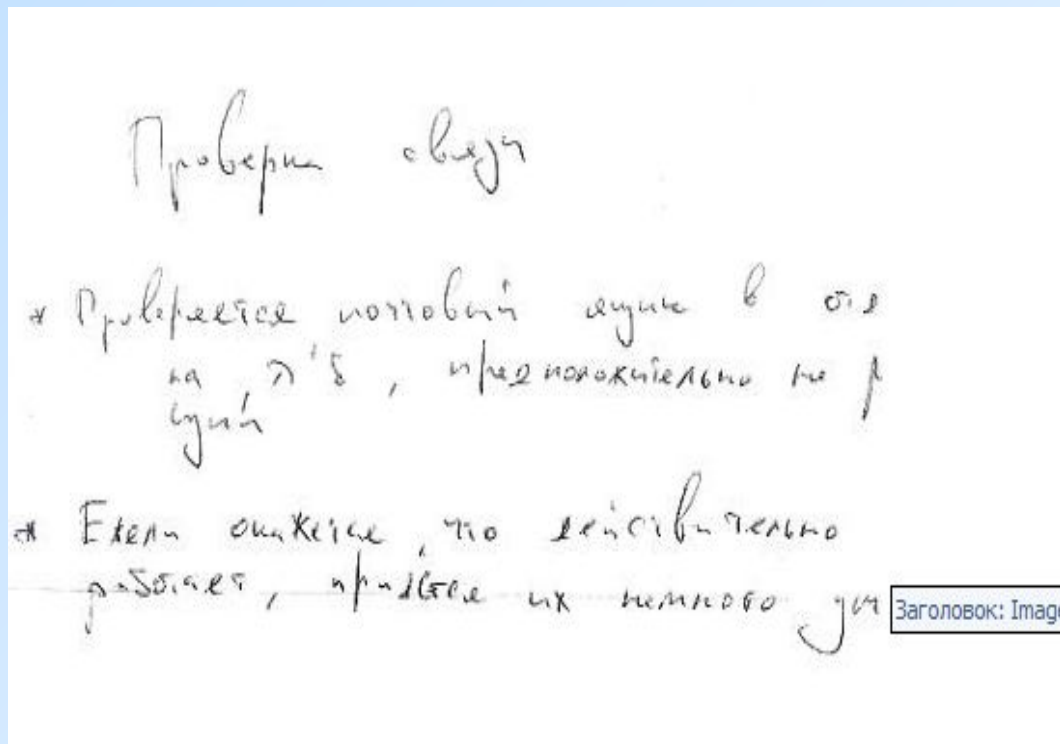 Проверка связи
* Проверяется почтовый ящик в
на, предположительно не р
ющий
* Ежели окажется, что действительно
работает, придётся их немного
Заголовок: Image